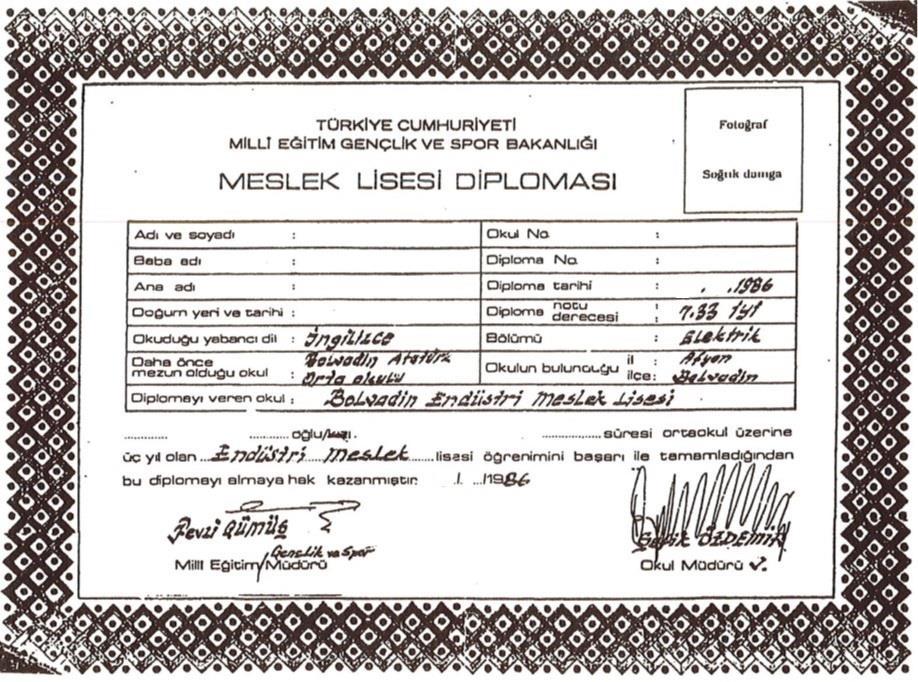 TÜRKİYE CUMHURİYETİ
MİLLİ EĞİTİM GENÇLİK VE SPOR BAKANLIĞI
MESLEK LİSESİ DİPLOMASI
Fotoğraf
Soğuk damga
Adı ve soyadı :
Okul No. :
Baba adı :
Diploma No. :
Ana adı :
Diploma tarihi : . .1986
Doğum yeri ve tarihi :
Diploma notu derecesi : 7.33 İyi
Okuduğu yabancı dil : İngilizce
Bölümü : Elektrik
Daha önce mezun olduğu okul : Bolvadin Atatürk Orta okulu
Okulun bulunduğu il : Afyon
ilçe : Bolvadin
Diplomayı veren okul : Bolvadin Endüstri Meslek Lisesi
............ ...........oğlu/kızı. ...............süresi ortaokul üzerine
üç yıl olan...Endüstri Meslek.....lisesi öğrenimini başarı ile tamamladığından
bu diplomayı almaya hak kazanmıştır. ./. ../1986
Fevzi GÜMÜŞ
Milli Eğitim/Gençlik ve Spor Müdürü
ÖZDEMİR
Okul Müdürü V.